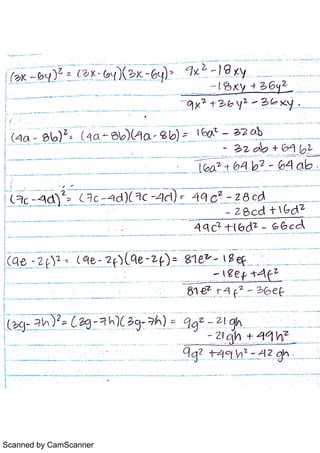 (3x-6y)² = (3x-6y)(3x-6y) = 9x² - 18xy
- 18xy + 36y²
9x² + 36y² - 36xy.
(4a - 8b)² = (4a - 8b)(4a - 8b) = 16a² - 32ab
- 32ab + 64b²
16a² + 64b² - 64ab.
(7c - 4d)² = (7c - 4d)(7c - 4d) = 49c² - 28cd
- 28cd + 16d²
49c² + 16d² - 56cd
(9e - 2f)² = (9e - 2f)(9e - 2f) = 81e² - 18ef
- 18ef + 4f²
81e² + 4f² - 36ef
(3g - 7h)² = (3g - 7h)(3g - 7h) = 9g² - 21gh
- 21gh + 49h²
9g² + 49h² - 42gh.
Scanned by CamScanner